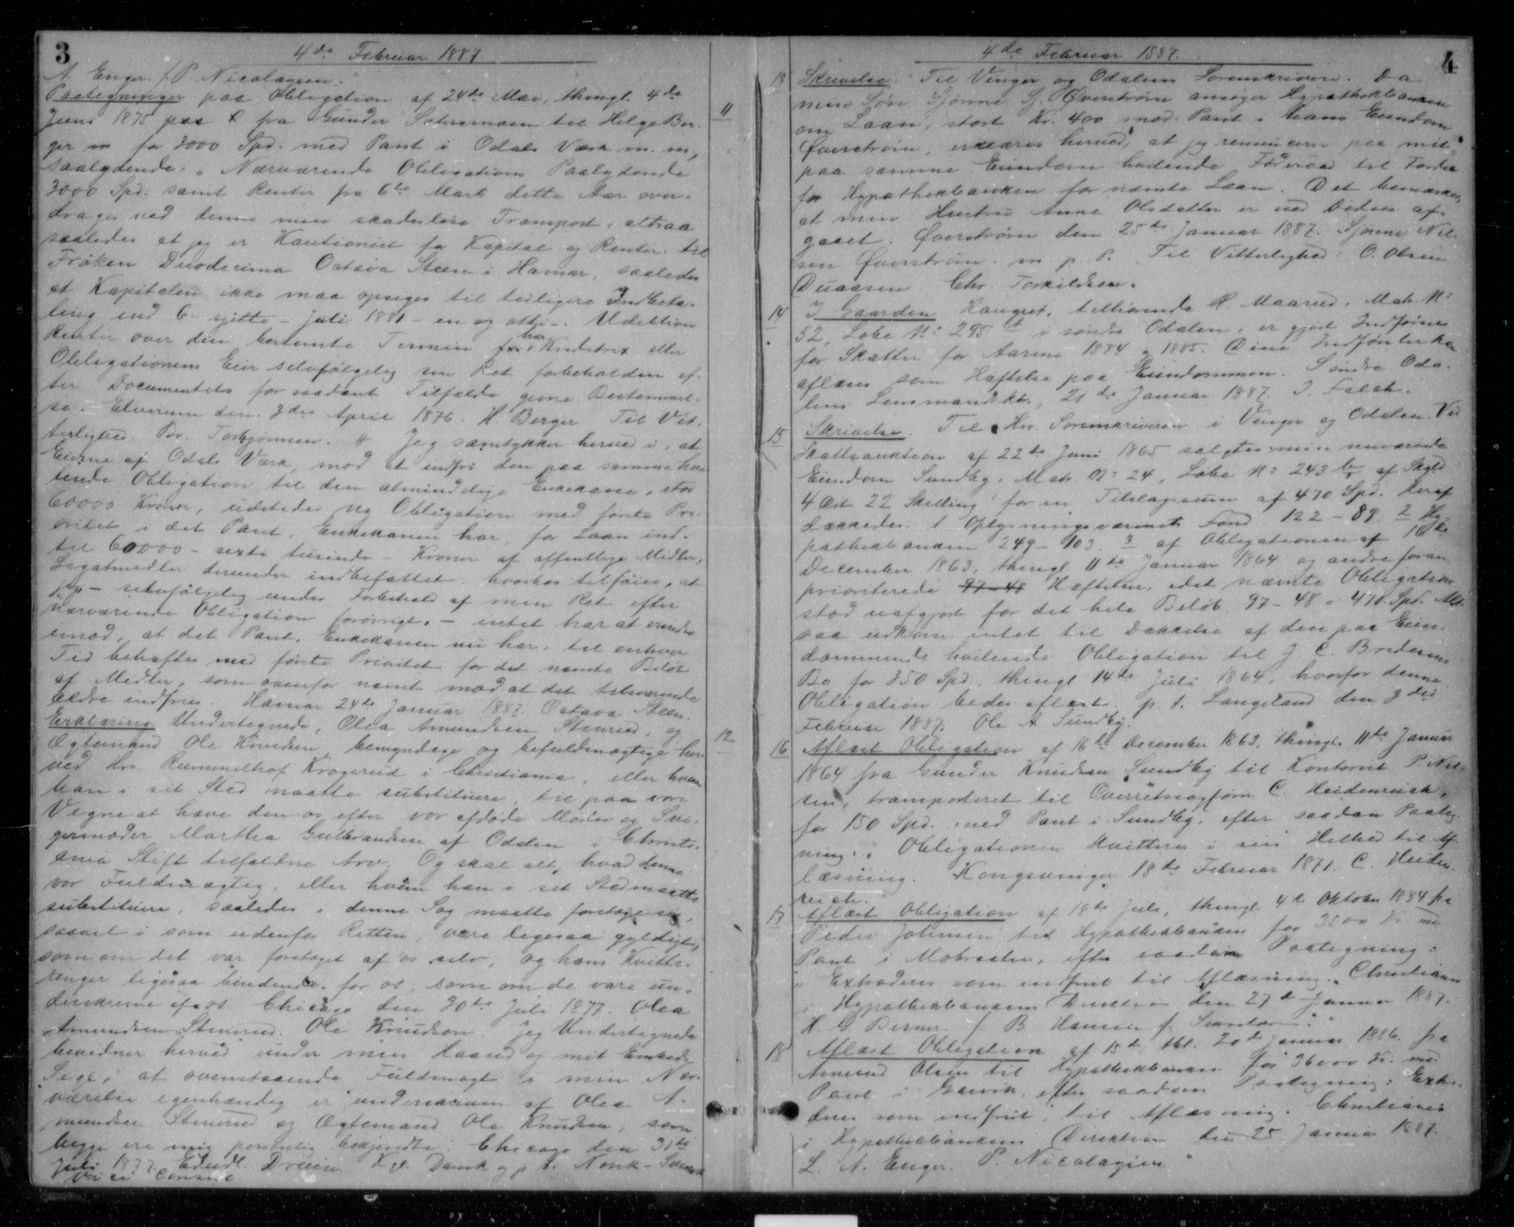 3
4de Februar 1887.
A. Enger. / P. Nicolaysen."
Paategninger paa Obligation af 24de Mai, thingl. 4de
Juni 1875 fra Gunder Sætersmoen til Helge Ber-
ger for 3000 Spd. med Pant i Odals Værk m. m,
saalydende: „Nærværende Obligations Paalydende
3000 Spd. samt Renter fra 6te Marts dette Aar over-
drages ved denne min skadesløse Transport, altsaa
saaledes at jeg er Kautionist for Kapital og Renter til
Frøken Duodecima Octava Steen i Hamar, saaledes
at Kapitalen ikke maa opsiges til tidligere Indbeta-
ling end 6 - sjette - Juli 1881 - en og otti -. Udebliver
Renter over den bestemte Termin har Kreditrix eller
Obligationens Eier selvfølgelig sin Ret forbeholden ef-
ter Documentets for saadant Tilfælde givne Bestemmel-
se. Elverum den 3die April 1876. H. Berger Til Vit-
terlighed: Torbjørnsen. Jeg samtykker herved i, at
Eierne af Odals Værk, mod at indfri den paa samme hvi-
lende Obligation til den almindelige Enkekasse, stor
60000 Kroner, udsteder ny Obligation med første Pri-
oritet i det Pant, Enkekassen har, for Laan ind-
til 60000 - sexti tusinde - Kroner af offentlige Midler,
Legatmidler derunder indbefattet, hvorhos tilføies, at
jeg - selvfølgelig under Forbehold af min Ret efter
nærværende Obligation forøvrigt, - intet har at erindre
imod, at det Pant, Enkekassen nu har, til enhver
Tid behæftes med første Prioritet for det nævnte Beløb
af Midler, som ovenfor nævnt mod at det tilsvarende
ældre indfries. Hamar 24de Januar 1887. Octava Steen.
Erklæring Undertegnede, Olea Amundsen Stenrud, og
Ægtemand Ole Knudsen, bemyndige og befuldmægtige her-
ved Hr. Rummelhof Krogsrud i Christiania, eller hvem
han i sit Sted maatte substituere, til paa vore
Vegne at hæve den os efter vor afdøde Moder og Svi-
germoder Martha Gulbrandsen af Odden i Christi-
ania Stift tilfaldne Arv. Og skal alt, hvad denne
vor Fuldmægtig, eller hvem han i sit Sted maatte
substituere, saaledes i denne Sag maatte foretage sig,
saavel i som udenfor Retten, være ligesaa gyldigt,
som om det var foretaget af os selv, og hans Kvitte-
ringer ligesaa bindende for os, som om de vare un-
derskrevne af os. Chicago den 30te Juli 1877. Olea
Amundsen Stenrud. Ole Knudsen. Jeg Undertegnede
bevidner herved under min Haand og mit Embeds
Segl, at ovenstaaende Fuldmagt i min Nær-
værelse egenhændig er underskreven af Olea A-
mundsen Stenrud og Ægtemand Ole Knudsen, som
begge ere mig personlig bekjendte. Chicago den 31te
Juli 1877. Dreier kgl. Dansk og p. t. Norsk-Svensk
Vice Consul
11
12
4
4de Februar 1887.
13 Skrivelse. Til Vinger og Odalens Sorenskriveri. Da
min Søn Gjønne Gj. Øverstrøm ansøger Hypothekbanken
om Laan, stort Kr. 400 mod Pant i hans Eiendom
Øverstrøm, erklæres herved, at jeg renuncerer paa mit
paa samme Eiendom hvilende Føderaad til Fordel
for Hypothekbanken for nævnte Laan. Det bemærkes,
at min Hustru Anne Olsdatter er ved Døden af-
gaaet. Øverstrøm den 25de Januar 1887. Gjønne Nil-
sen Øverstrøm m. p. P. Til Vitterlighed: O. Olsen
Duaasen. Chr. Torkildsen.
14 I Gaarden Haugset, tilhørende H Maarud, Matr. No
52, Løbe No 295 i søndre Odalen, er gjort Indførsel
for Skatter for Aarene 1884 og 1885. Disse Indførsler kan
aflæses som Hæftelse paa Eiendommen. Søndre Oda-
lens Lensmandskt., 21de Januar 1887. J. Falch.
15 Skrivelse. Til Hr. Sorenskriveren i Vinger og Odalen. Ved
Skatteauktion af 22de Juni 1865 solgtes min nuværende
Eiendom Sundby, Matr. No 24, Løbe No 243 b, af Skyld
4 Ort 22 Skilling for en Tilslagssum af 470 Spd. Heraf
dækkedes Oplysningsvæsenets Fond 122 - 89. 2 Hy-
pothekbanken 249 - 103. 3 af Obligationen af 16de
December 1863, thingl. 11te Januar 1864 og andre foran
prioriterede 97-48 Hæftelser, idet nævnte Obligation
stod uafgjort for det hele Beløb 97 - 48 = 470 Spd. Alt-
saa udkom intet til Dækkelse af den paa Eien-
dommende hvilende Obligation til J C. Bredesens
Bo for 350 Spd., thingl. 14de Juli 1864, hvorfor denne
Obligation bedes aflæst. p. t. Langeland den 3die
Februar 1887. Ole A Sundby.
16 Aflæst Obligation af 16de December 1863, thingl. 11te Januar
1864 fra Gunder Knudsen Sundby til Kontorist P. Nil-
sen, transporteret til Overretssagfører C. Heidenreich,
for 150 Spd. med Pant i Sundby, efter saadan Paateg-
ning: Obligationen kvitteres i sin Helhed til Af-
læsning. Kongsvinger 18de Februar 1871. C. Heiden-
reich.
17 Aflæst Obligation af 18de Juli, thingl. 4de Oktober 1884 fra
Peder Johnsen til Hypothekbanken for 3500 Kr. med
Pant i Mobraaten, efter saadan Paategning:
„Extraderes som indfriet til Aflæsning. Christiania
i Hypothekbankens Direktion den 27de Januar 1887.
H. E. Berner. / B Hansen f. Secretær."
18 Aflæst Obligation af 15de, thl. 20de Januar 1886 fra
Amund Olsen til Hypothekbanken for 36000 Kr. med
Pant i Garvik, efter saadan Paategning: Extra-
deres som indfriet til Aflæsning. Christiania
i Hypothekbankens Direktion den 25 Januar 1887.
L. A. Enger. P. Nicolaysen"